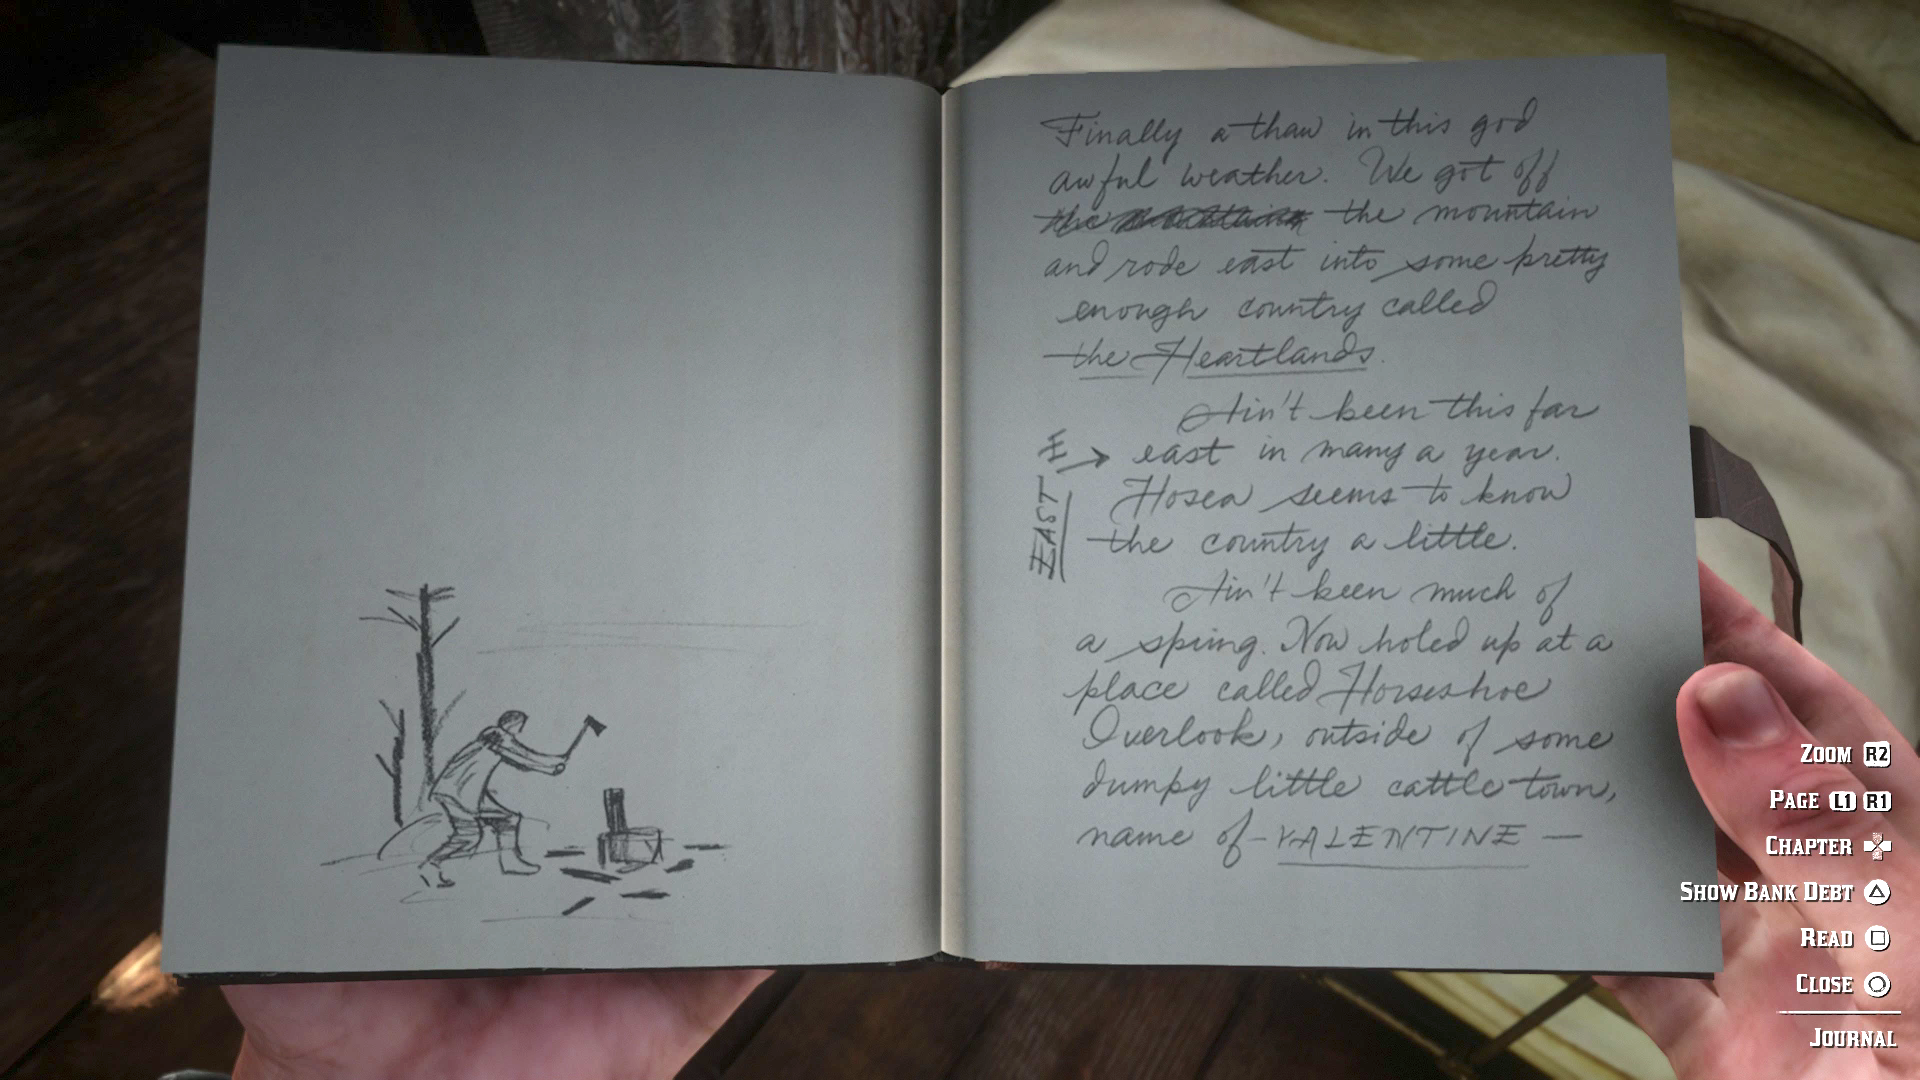 Finally a thaw in this god
awful weather. We got off
the mountain the mountain
and rode east into some pretty
enough country called
the Heartlands.
Ain't been this far
east in many a year.
Hosea seems to know
the country a little.
EAST
Ain't been much of
a spring. Now holed up at a
place called Horseshoe
Overlook, outside of some
dumpy little cattle town,
name of - VALENTINE -
ZOOM R2
PAGE L1 R1
CHAPTER
SHOW BANK DEBT
READ
CLOSE
JOURNAL